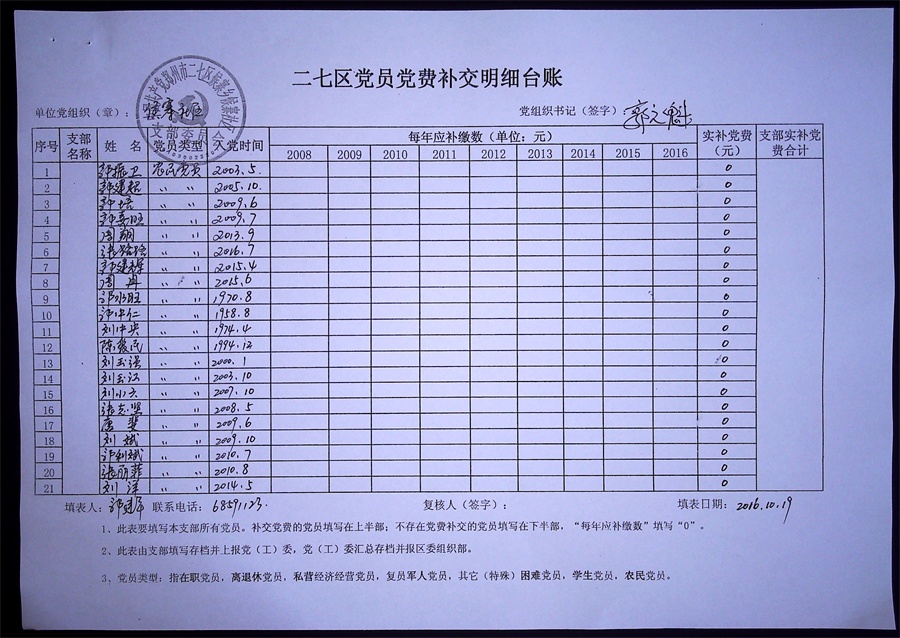 二七区党员党费补交明细台账
单位党组织（章）：侯寨社区 党组织书记（签字）：
序号 支部名称 姓 名 党员类型 入党时间 每年应补缴数（单位：元） 实补党费（元） 支部实补党费合计
2008 2009 2010 2011 2012 2013 2014 2015 2016
1 农民党员 2003.5. 0
2 〃 〃 2005.10. 0
3 〃 〃 2009.6 0
4 〃 〃 2009.7 0
5 周朝 〃 〃 2013.9 0
6 〃 〃 2016.7 0
7 〃 〃 2015.4 0
8 周冉 〃 〃 2015.6 0
9 〃 〃 1970.8 0
10 〃 〃 1958.8 0
11 刘中央 〃 〃 1974.4 0
12 〃 〃 1994.12 0
13 刘玉强 〃 〃 2000.1 0
14 刘玉江 〃 〃 2003.10 0
15 刘小六 〃 〃 2007.10 0
16 张志坚 〃 〃 2008.5 0
17 唐斐 〃 〃 2009.6 0
18 刘斌 〃 〃 2009.10 0
19 许利斌 〃 〃 2010.7 0
20 张丽菲 〃 〃 2010.8 0
21 刘洋 〃 〃 2014.5 0
填表人： 联系电话：68591123. 复核人（签字）： 填表日期：2016.10.19
1、此表要填写本支部所有党员。补交党费的党员填写在上半部；不存在党费补交的党员填写在下半部，“每年应补缴数”填写“0”。
2、此表由支部填写存档并上报党（工）委，党（工）委汇总存档并报区委组织部。
3、党员类型：指在职党员，离退休党员，私营经济经营党员，复员军人党员，其它（特殊）困难党员，学生党员，农民党员。